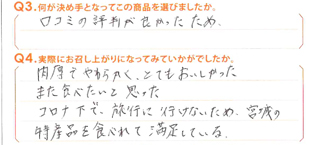 Q3.何が決め手となってこの商品を選びましたか。
口コミの評判が良かったため.
Q4.実際にお召し上がりになってみていかがでしたか。
肉厚でやわらかく、とてもおいしかった
また食べたいと思った
コロナ下で、旅行に行けないため、宮城の
特産品を食べれて満足している.